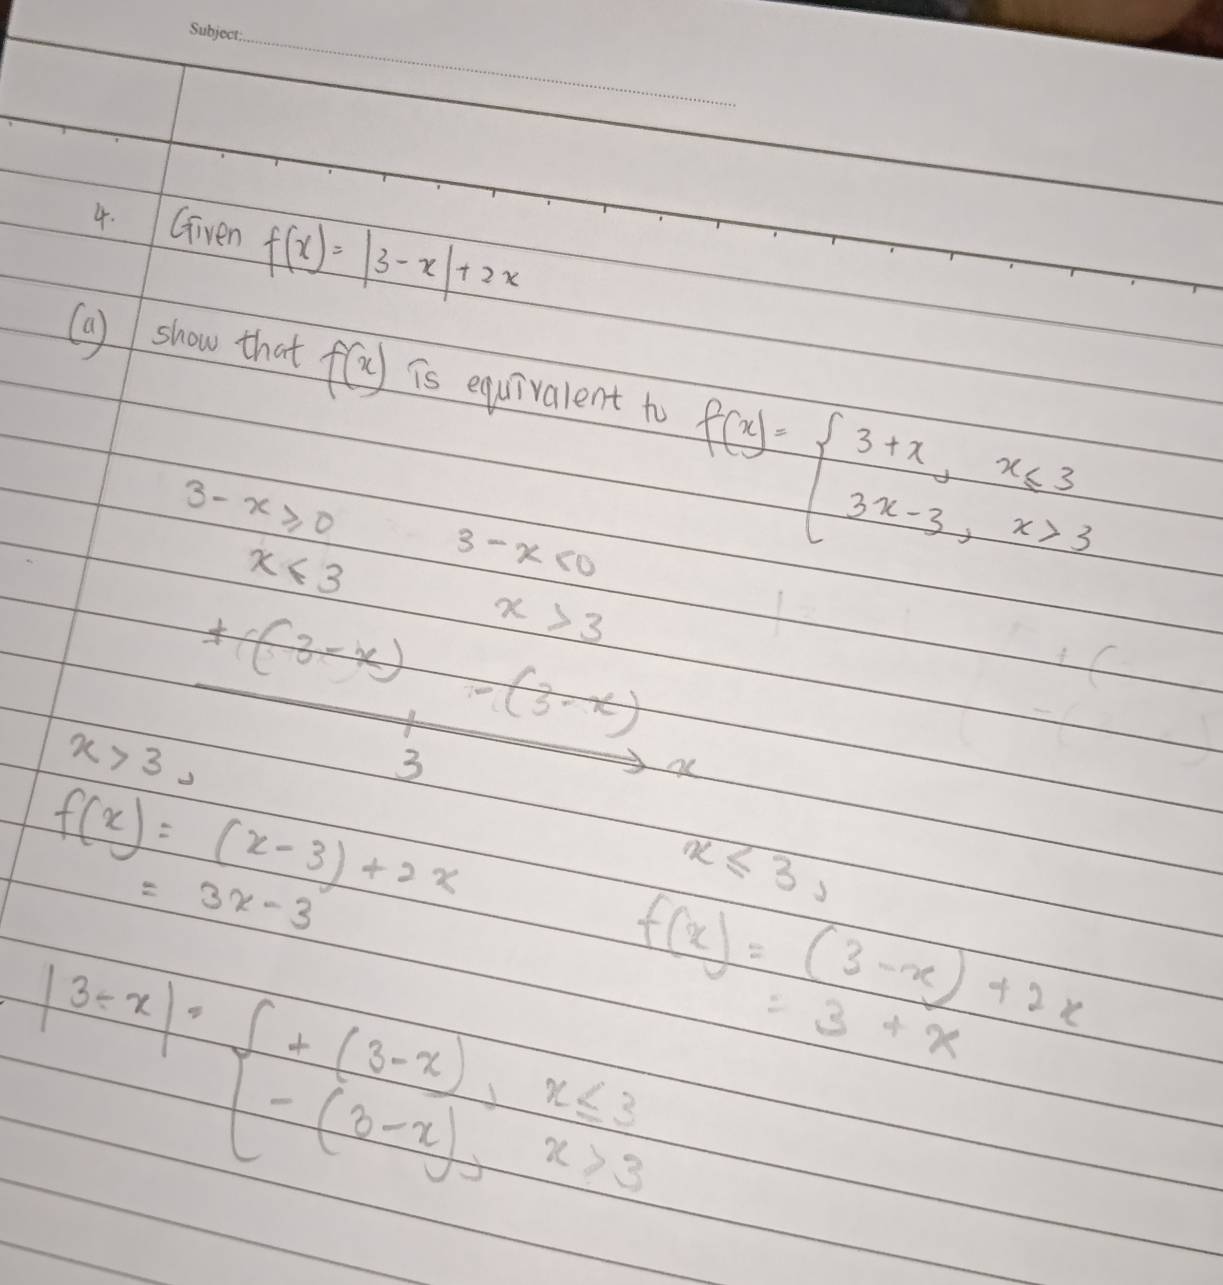 Subject:
4. Given f(x) = |3 - x| + 2x
(a) show that f(x) is equivalent to f(x) = { 3 + x, x ≤ 3
3x - 3, x > 3
3 - x ≥ 0 3 - x < 0
x ≤ 3 x > 3
+ (3 - x) - (3 - x)
3 x
x > 3, x ≤ 3,
f(x) = (x - 3) + 2x f(x) = (3 - x) + 2x
= 3x - 3 = 3 + x
|3 - x| = { + (3 - x), x ≤ 3
- (3 - x), x > 3